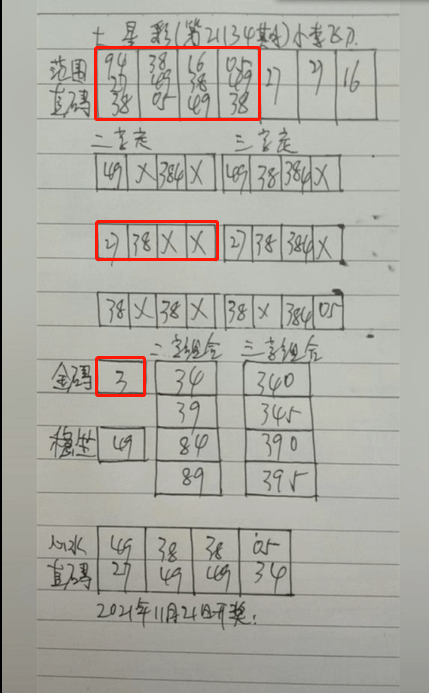 七星彩(第21134期)小李飞刀
范围 94 38 16 05
27 49 38 49 27 27 16
直码 38 05 49 38
二字定 三字定
49 X 384 X 49 38 384 X
27 38 X X 27 38 384 X
38 X 38 X 38 X 384 05
二字组合 三字组合
金码 3 34 340
39 345
稳坐 49 84 390
89 395
心水 49 38 38 05
直码 27 49 49 34
2021年11月21日开奖: